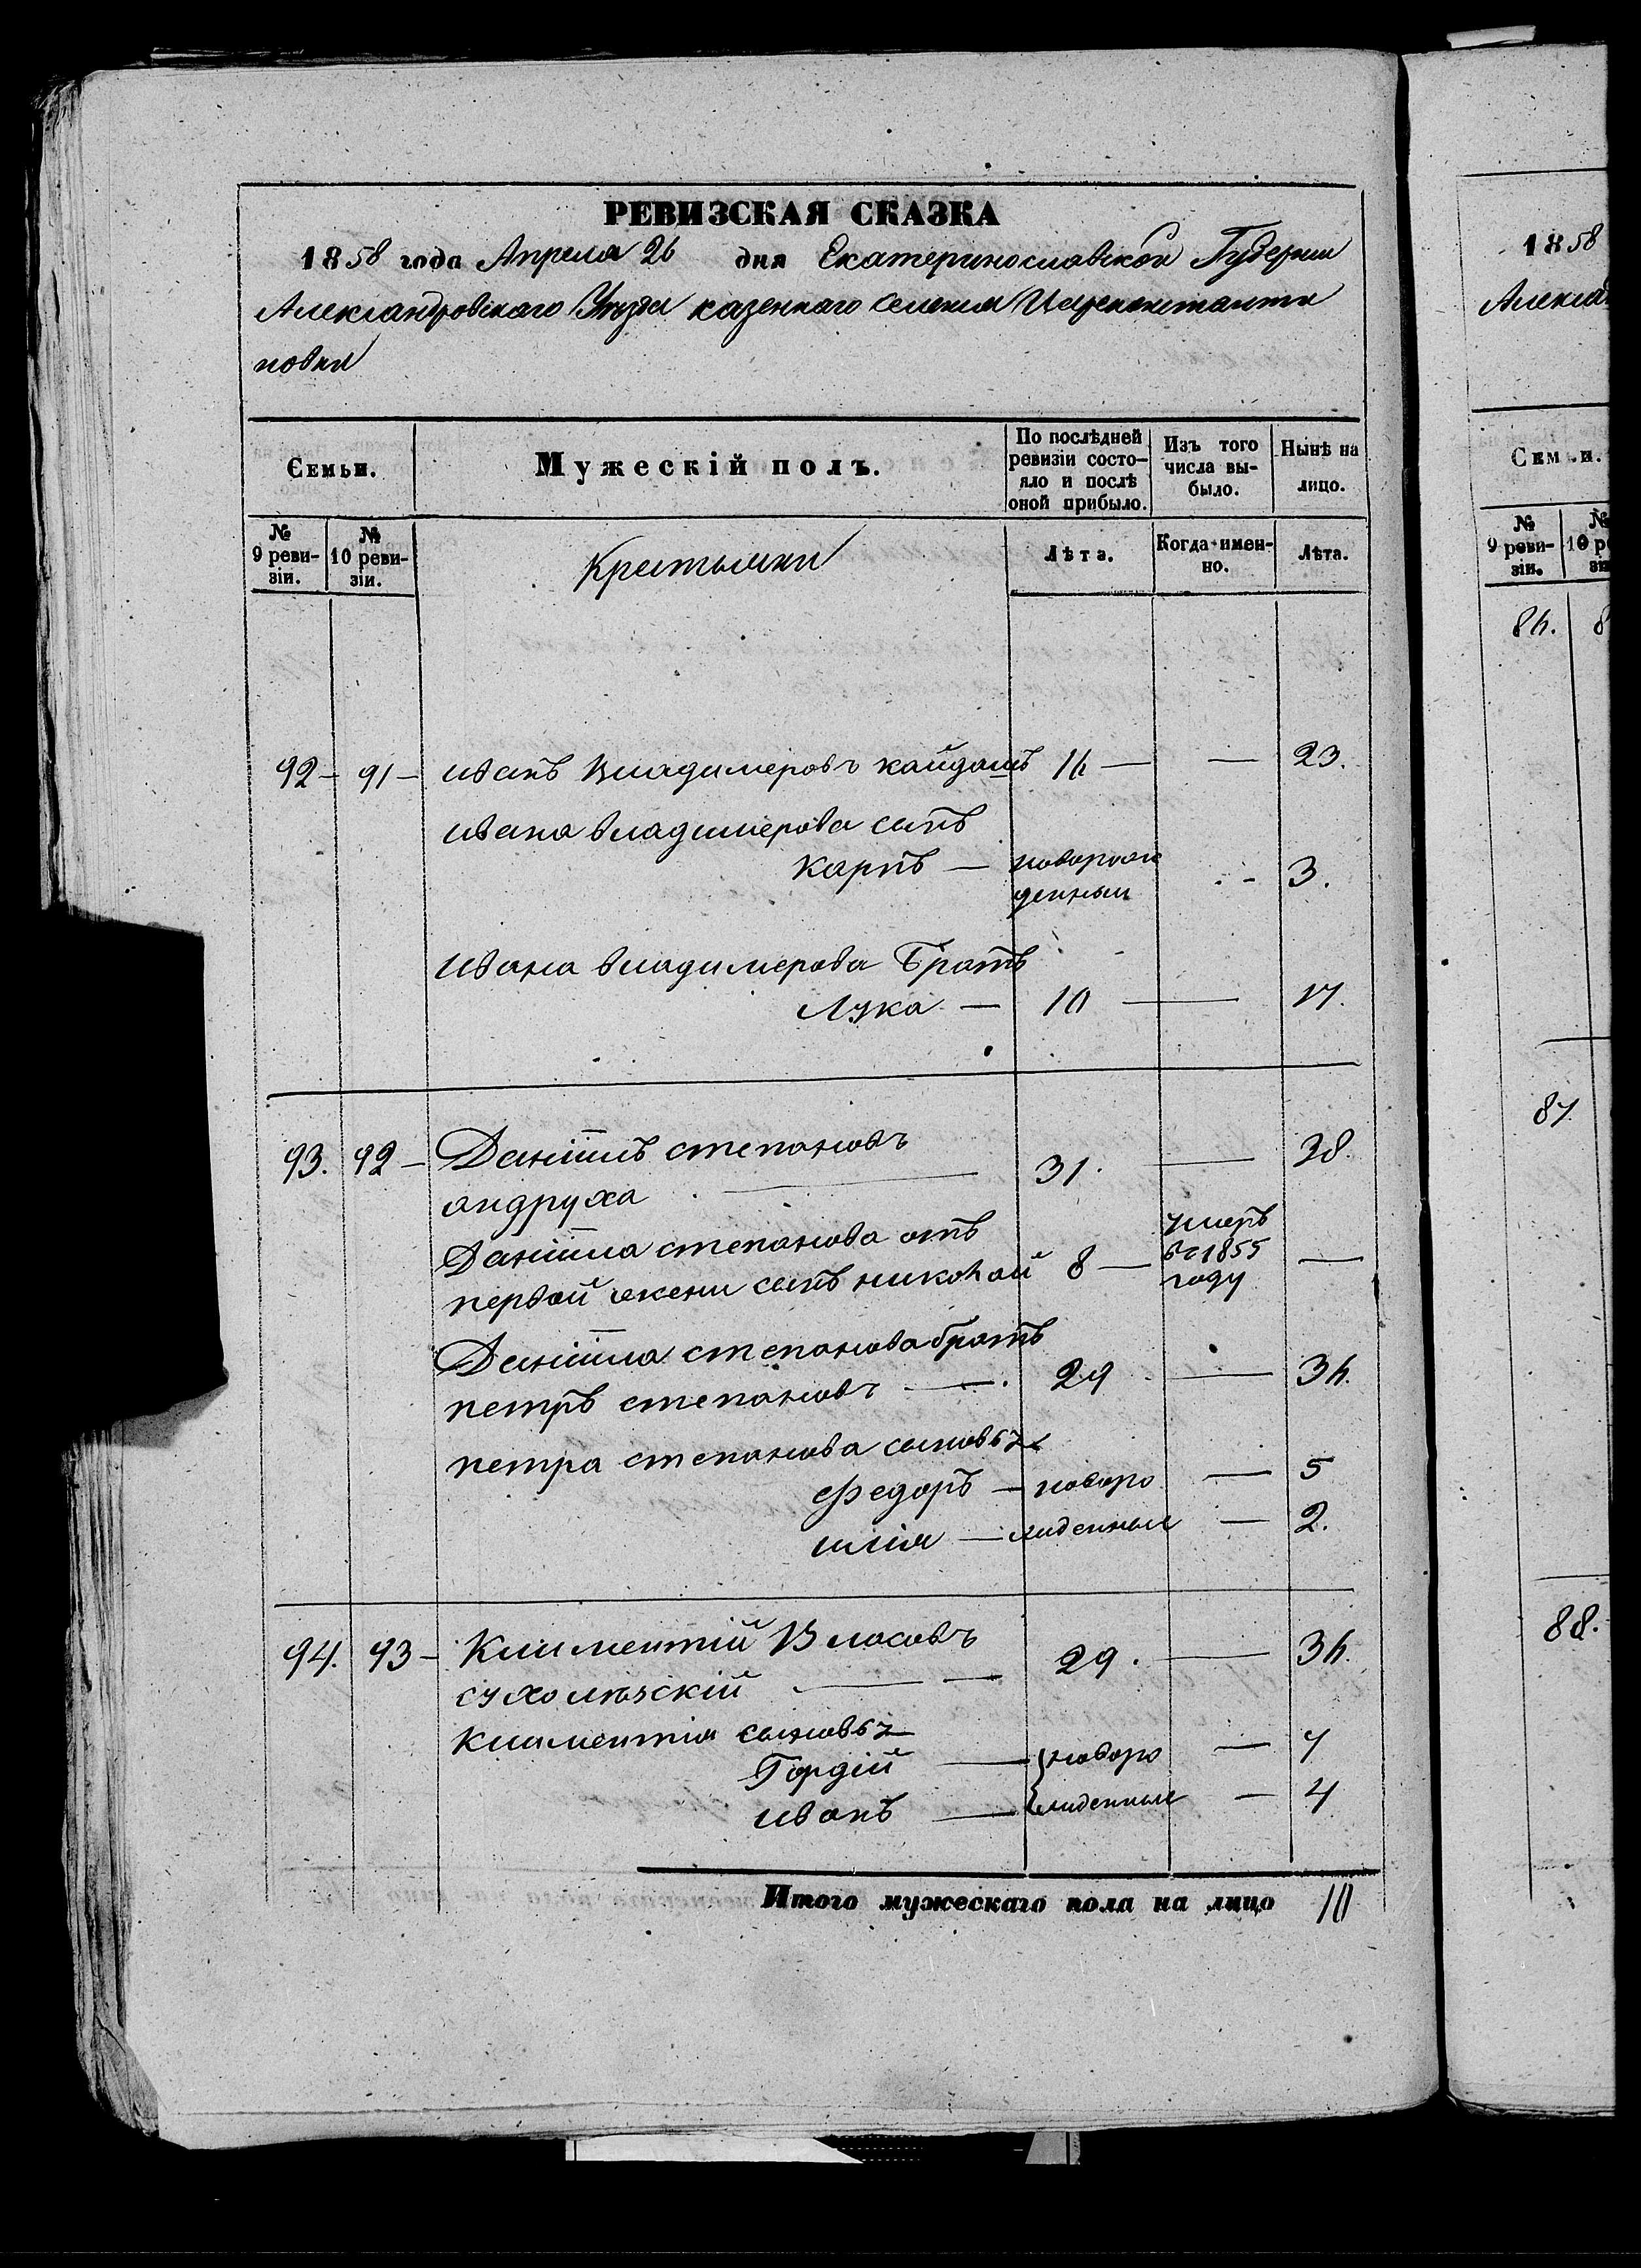 РЕВИЗСКАЯ СКАЗКА
1858 года Апреля 26 дня Екатеринославской Губернии
Александровского Уезда казенного селения Цареконстанти
новки
Семьи.
Мужескій полъ.
По послѣдней ревизіи состо-
яло и послѣ оной прибыло.
Изъ того числа вы-
было.
Нынѣ на лицо.
№ 9 реви-
зіи.
№ 10 реви-
зіи.
Крестьяни
Лѣта.
Когда имен-
но.
Лѣта.
92 - 91 - иванъ Владимеровъ кайдашъ 16 — — 23.
ивана владимерова сынъ
карпъ — наворож
денный - 3.
ивана владимерова Братъ
Лука — 10 — 17.
93. 92 - Даніилъ степановъ
андруха — 31. — 38.
Даніила степанова отъ
первой жени сынъ николай 8 — умеръ
въ 1855
году —
Даніила степанова братъ
петръ степановъ — 29 — 36.
петра степанова сыновья
федоръ — наворо — 5
илія — жденные — 2.
94. 93 - Климентій Власовъ
сухолѣзскій — 29. — 36.
климентія сыновья
Гордій — наворо — 7
иванъ — жденные — 4
Итого мужескаго пола на лицо 10
1858
Алекса
Семьи.
№ 9 реви-
зіи.
86.
87
88.